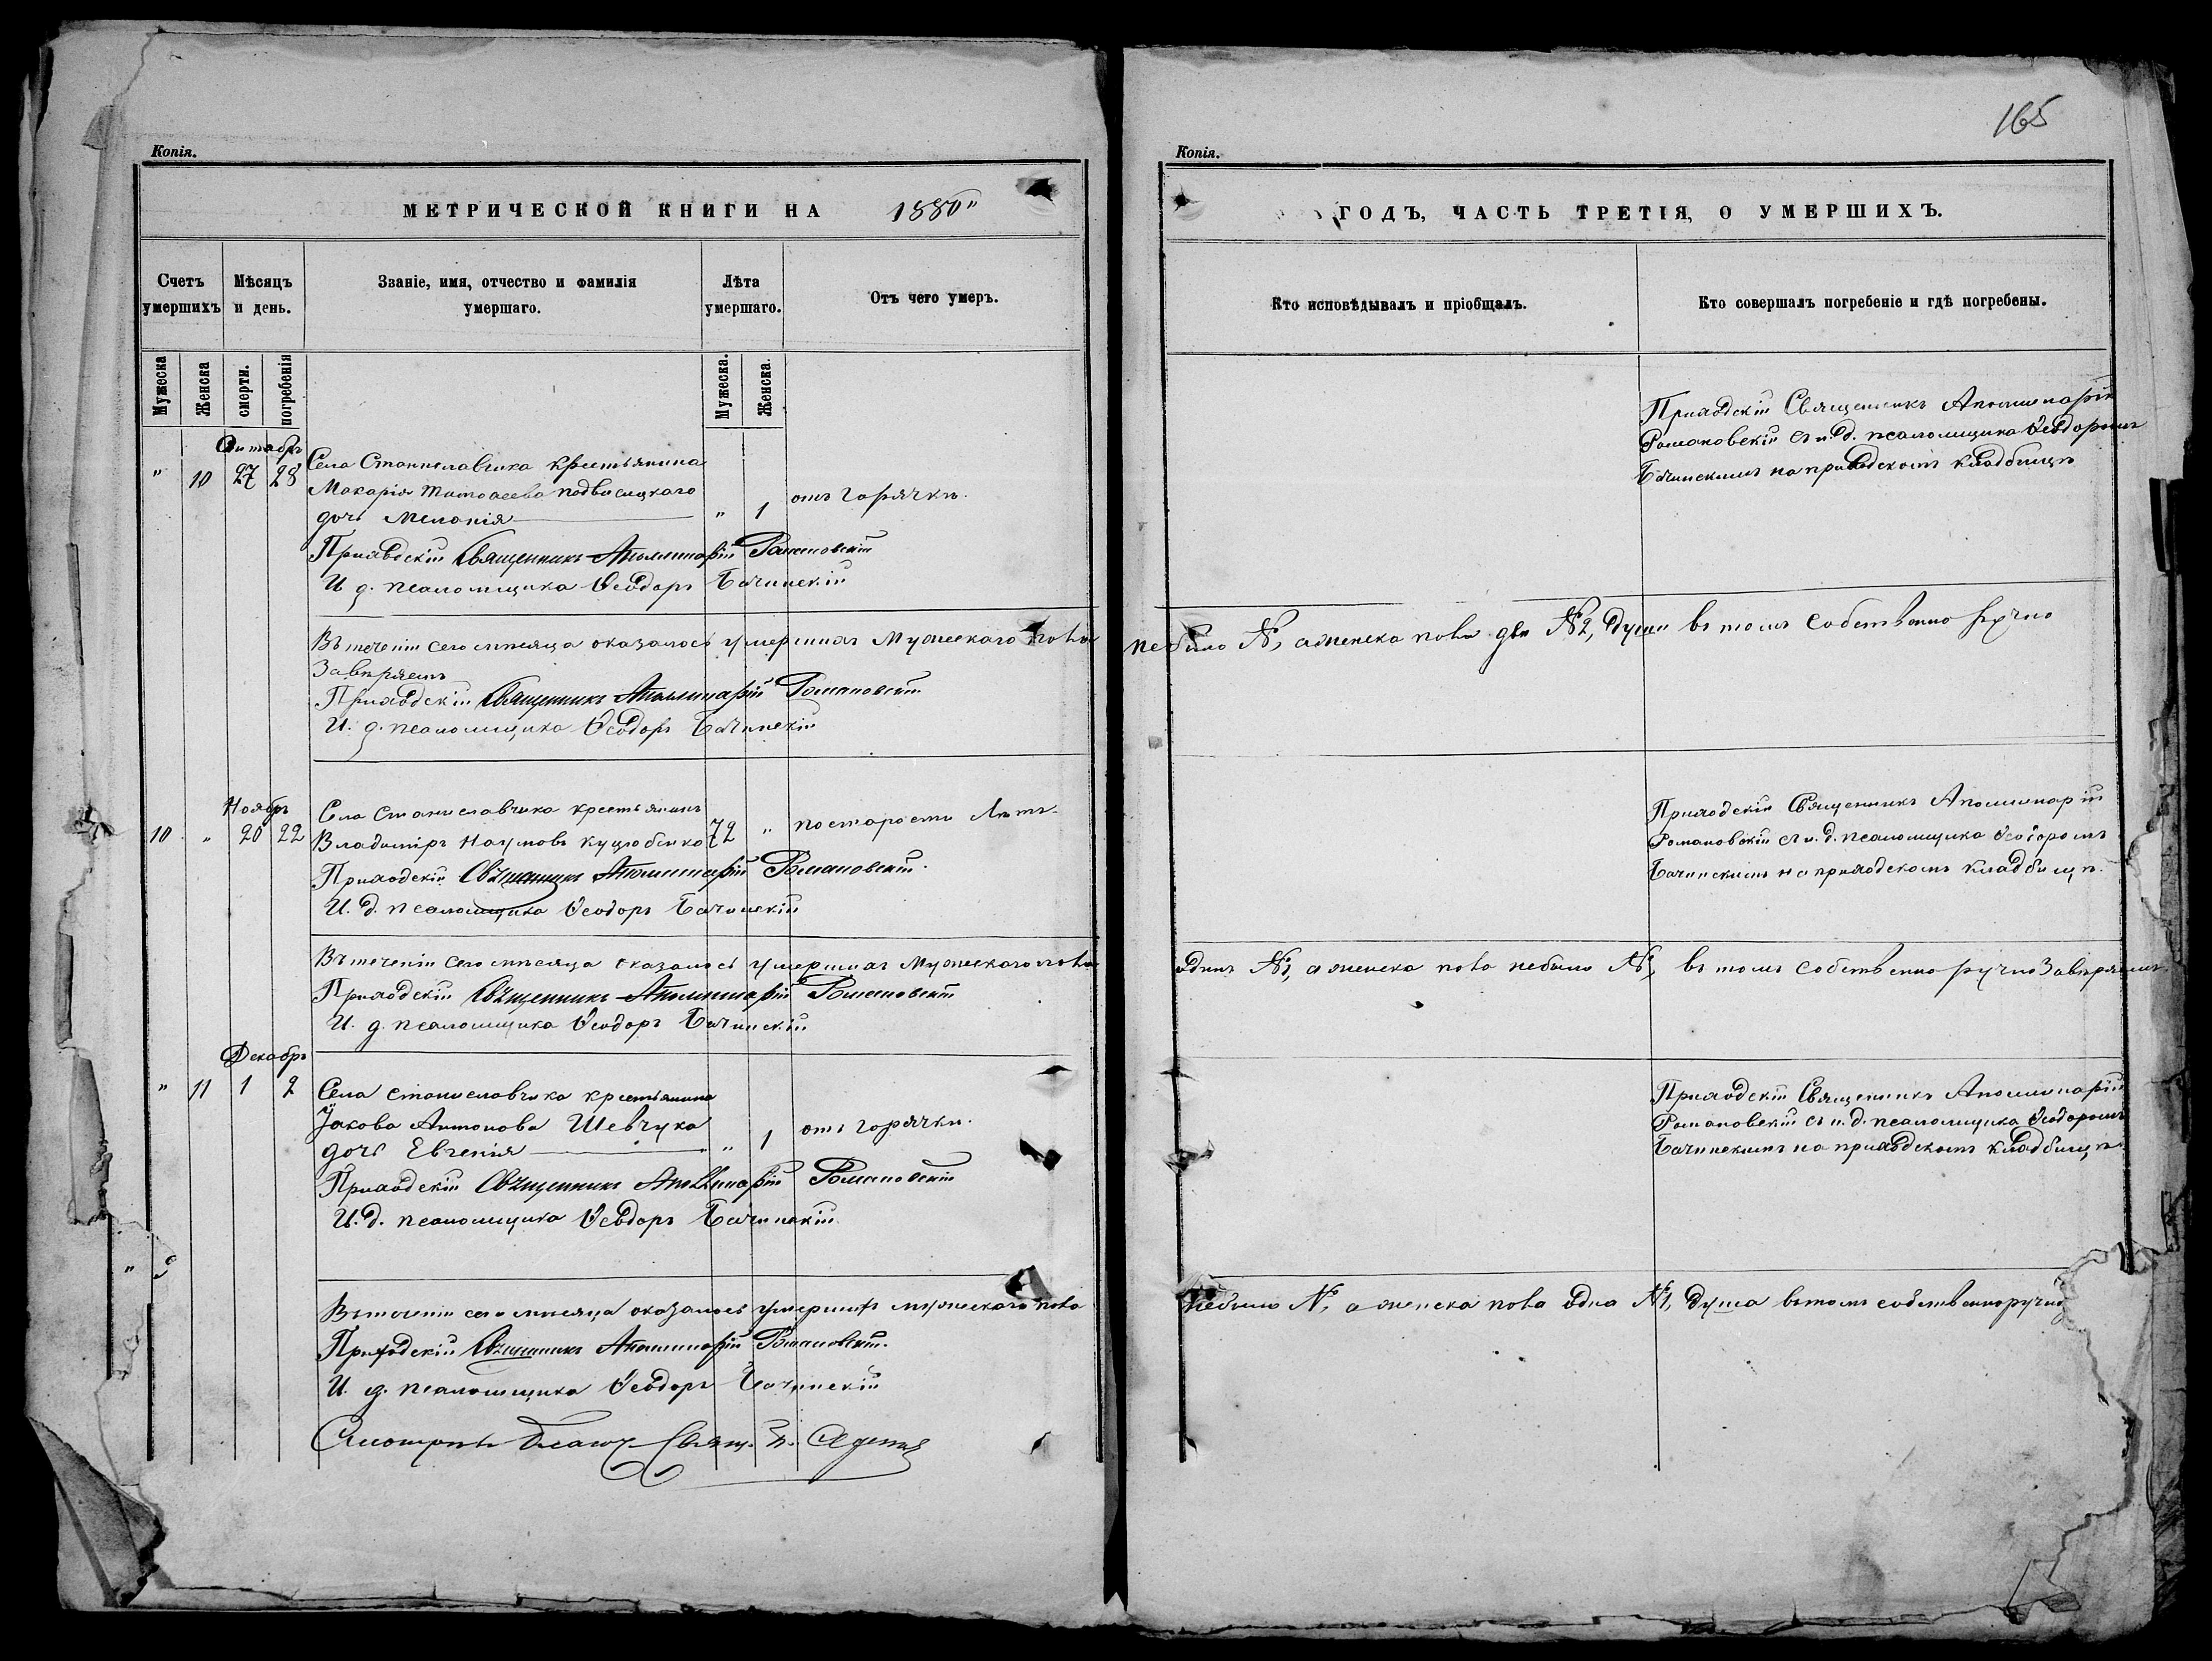 165
Копія.
МЕТРИЧЕСКОЙ КНИГИ НА 1880
Счетъ умершихъ
Мѣсяцъ и день.
Званіе, имя, отчество и фамилія умершаго.
Лѣта умершаго.
Отъ чего умеръ.
Мужеска
Женска
смерти.
погребенія
Мужеска.
Женска.
Октабръ
" 10 27 28 Села Станиславчика крестьянина
Макарія Тимоѳеева Подвисоцкаго " 1 отъ горячки.
дочь Меланія
Приходскій Священникъ Аполлинарій Романовскій
И д. псаломщика Ѳеодоръ Бачинскій
Въ теченіи сего мѣсяца оказалось умершихъ Мужескаго пола
Завѣряемъ
Приходскій Священникъ Аполлинарій Романовскій
И. д. псаломщика Ѳеодоръ Бачинскій
Ноябръ
10 " 20 22 Села Станиславчика крестьянинъ
Владиміръ Наумовъ Куцюбенко 72 " по старости Лѣтъ.
Приходскій Священникъ Аполлинарій Романовскій.
И. д. псаломщика Ѳеодоръ Бачинскій
Въ теченіи сего мѣсяца оказалось умершихъ Мужескаго пола
Приходскій Священникъ Аполлинарій Романовскій
И. д. псаломщика Ѳеодоръ Бачинскій
Декабръ
" 11 1 2 Села Станиславчика крестьянина
Јакова Антонова Шевчука " 1 отъ горячки.
дочь Евгенія
Приходскій Священникъ Аполлинарій Романовскій
И. д. псаломщика Ѳеодоръ Бачинскій
Въ теченіи сего мѣсяца оказалось умершихъ мужескаго пола
Приходскій Священникъ Аполлинарій Романовскій.
И. д. псаломщика Ѳеодоръ Бачинскій
Смотрѣлъ Благоч. Свящ.
Копія.
ГОДЪ, ЧАСТЬ ТРЕТІЯ, О УМЕРШИХЪ.
Кто исповѣдывалъ и пріобщалъ.
Кто совершалъ погребеніе и гдѣ погребены.
Приходскій Священникъ Аполлинарій
Романовскій съ и. д. псаломщика Ѳеодоромъ
Бачинскимъ на приходскомъ кладбищѣ
небыло №, а женска пола двѣ №2, души въ томъ собственно ручно
Приходскій Священникъ Аполлинарій
Романовскій съ и. д. псаломщика Ѳеодоромъ
Бачинскимъ на приходскомъ кладбищѣ.
одинъ №1, а женска пола небыло №, въ томъ собственно ручно Завѣряемъ
Приходскій Священникъ Аполлинарій
Романовскій съ и. д. псаломщика Ѳеодоромъ
Бачинскимъ на приходскомъ кладбищѣ.
небыло №, а женска пола одна №1, душа въ томъ собственноручно